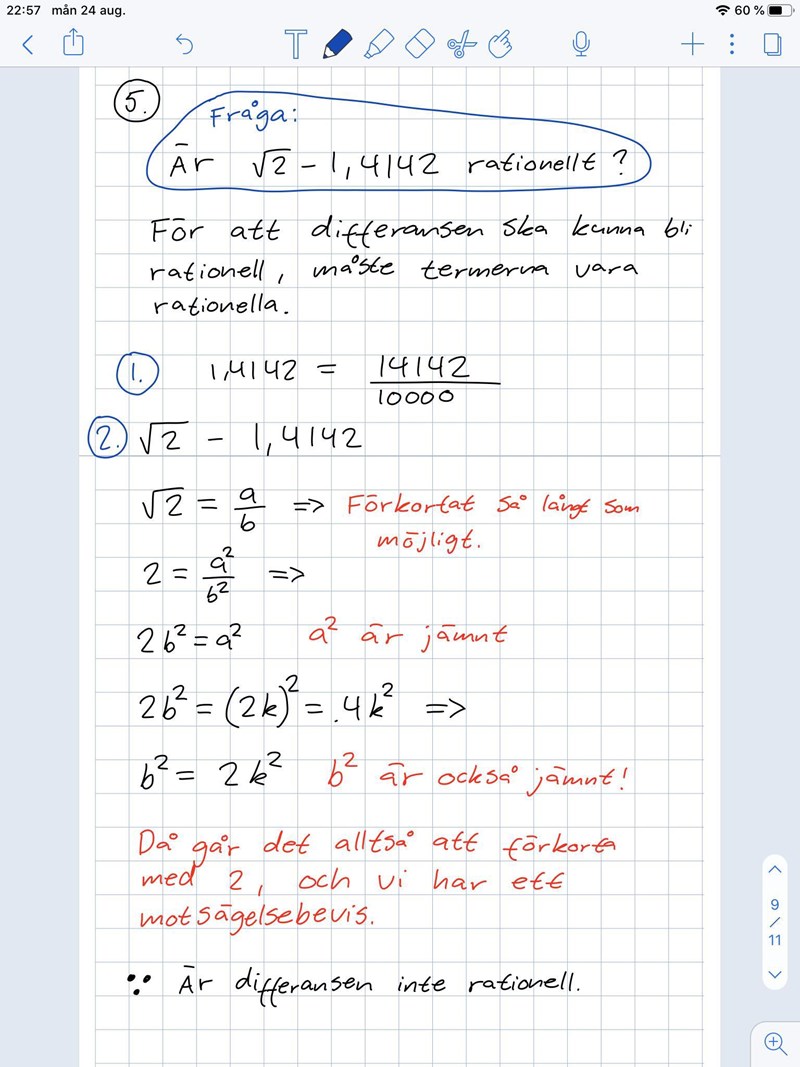 22:57 mån 24 aug.
60 %
5.
Fråga:
Är √2 - 1,4142 rationellt?
För att differansen ska kunna bli
rationell, måste termerna vara
rationella.
1. 1,4142 = 14142/10000
2. √2 - 1,4142
√2 = a/b => Förkortat så långt som
möjligt.
2 = a²/b² =>
2b² = a² a² är jämnt
2b² = (2k)² = .4k² =>
b² = 2k² b² är också jämnt!
Då går det alltså att förkorta
med 2, och vi har ett
motsägelsebevis.
∵ Är differansen inte rationell.
9
/
11